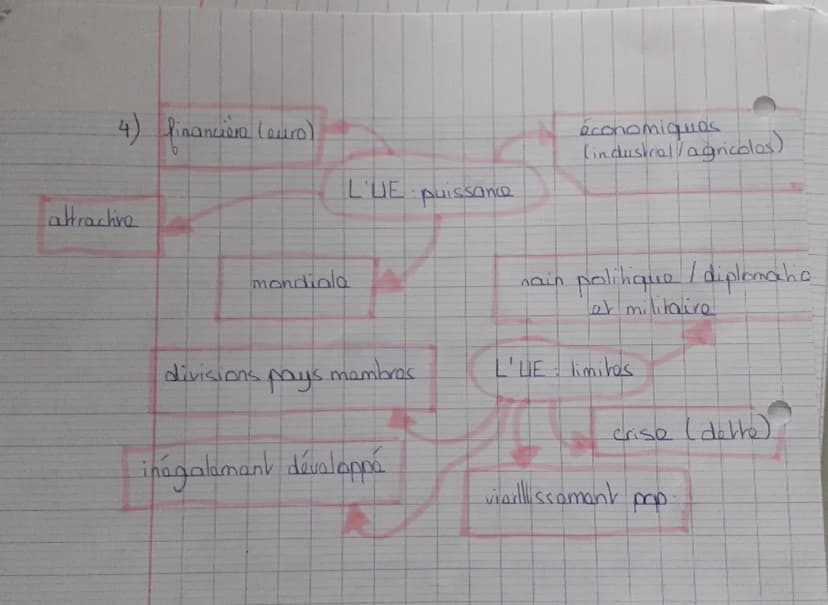 4) financière (euro)
économiques
(industriel/agricoles)
L'UE : puissance
attractive
mondiale
nain politique / diplomatic
et militaire
divisions pays membres
L'UE : limites
crise (dette)
inégalement développé
vieillissement pop